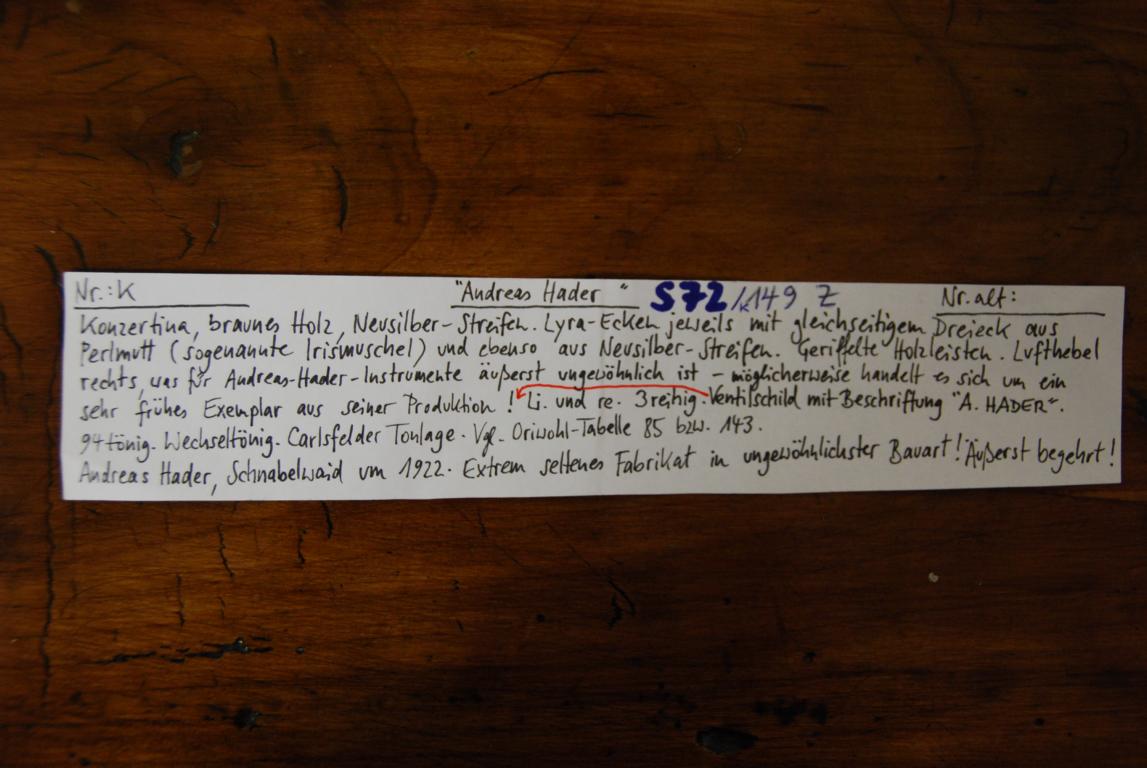 Nr.: K "Andreas Hader" S72/149 Z Nr. alt:
Konzertina, braunes Holz, Neusilber-Streifen. Lyra-Ecken jeweils mit gleichseitigem Dreieck aus
Perlmutt (sogenannte Irismuschel) und ebenso aus Neusilber-Streifen. Geriffelte Holzleisten. Lufthebel
rechts, was für Andreas-Hader-Instrumente äußerst ungewöhnlich ist - möglicherweise handelt es sich um ein
sehr frühes Exemplar aus seiner Produktion! Li. und re. 3reihig. Ventilschild mit Beschriftung "A. HADER".
94tönig. Wechseltönig. Carlsfelder Tonlage. Vgl. Oriwohl-Tabelle 85 bzw. 143.
Andreas Hader, Schnabelwaid um 1922. Extrem seltenes Fabrikat in ungewöhnlichster Bauart! Äußerst begehrt!